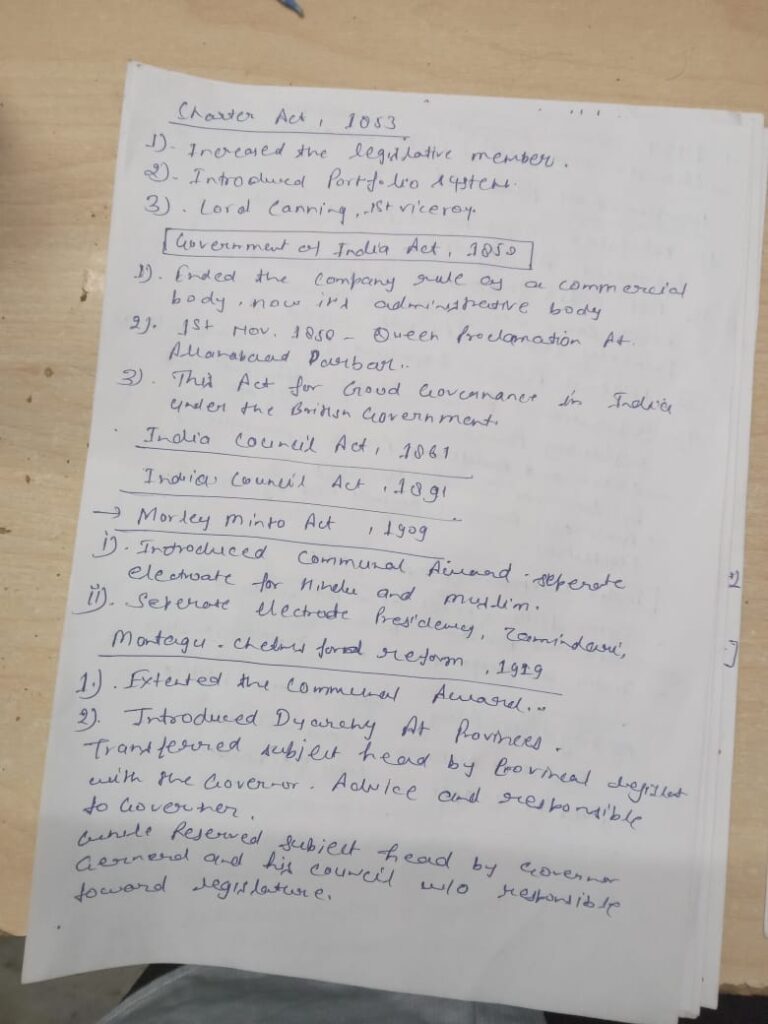 Charter Act, 1853
1). Increased the legislative member.
2). Introduced Portfolio system.
3). Lord Canning, 1st viceroy.
Government of India Act, 1858
1). Ended the company rule as a commercial
body, now its administrative body
2). 1st Nov. 1858 - Queen Proclamation At
Allahabad Darbar..
3). This Act for Good Governance in India
under the British Government.
India Council Act, 1861
India Council Act, 1891
→ Morley Minto Act, 1909
i). Introduced Communal Award. seperate
electroate for Hindu and muslim.
ii). Seperate electrode Presidency, Zamindari,
Montagu - Chelmsford reform, 1919
1.). Extented the Communal Award..
2). Introduced Dyarchy At Provinces.
Transferred subject head by Provincal legislat
with the Governor. Advice and responsible
to Governer.
while Reserved subject head by Governor
Gernerd and his council w/o responsible
toward legislature.